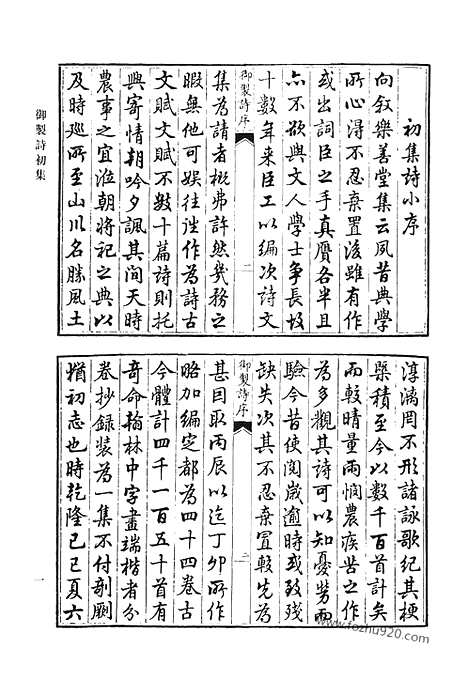 初集詩小序
向敘樂善堂集云夙昔典學
所心得不忍棄置後雖有作
或出詞臣之手真贗各半且
亦不欲與文人學士爭長故
十數年来臣工以編次詩文
御製詩序
二
集為請者概弗許然幾務之
暇無他可娛往往作為詩古
文賦文賦不數十篇詩則托
興寄情朝吟夕諷其間天時
農事之宜涖朝將祀之典以
及時巡所至山川名勝風土
淳漓罔不形諸詠歌紀其梗
槩積至今以數千百首計矣
而較晴量雨憫農疾苦之作
為多觀其詩可以知憂勞而
驗今昔使閱歲逾時或致殘
缺失次其不忍棄置較先為
御製詩序
三
甚因取丙辰以迄丁卯所作
略加編定都為四十四卷古
今體計四千一百五十首有
奇命翰林中字畫端楷者分
卷抄録裝為一集不付剞劂
猶初志也時乾隆己巳夏六
御製詩初集
一
www.fozhu920.com